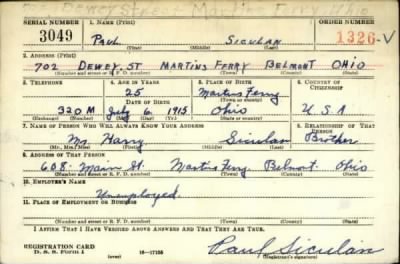 SERIAL NUMBER 1. NAME (Print) ORDER NUMBER
3049 PAUL SICULAN 1326-V
(First) (Middle) (Last)
2. ADDRESS (Print)
702 DEWEY. ST MARTINS FERRY BELMONT OHIO
(Number and street or R. F. D. number) (Town) (County) (State)
3. TELEPHONE 4. AGE IN YEARS 5. PLACE OF BIRTH 6. COUNTRY OF CITIZENSHIP
25 Martins Ferry
DATE OF BIRTH (Town or county)
320M July 6, 1915 Ohio U.S.A
(Exchange) (Number) (Mo.) (Day) (Yr.) (State or country)
7. NAME OF PERSON WHO WILL ALWAYS KNOW YOUR ADDRESS 8. RELATIONSHIP OF THAT PERSON
Mr. Harry Siculan Brother
(Mr., Mrs., Miss) (First) (Middle) (Last)
9. ADDRESS OF THAT PERSON
608. Main St. Martins Ferry Belmont. Ohio
(Number and street or R. F. D. number) (Town) (County) (State)
10. EMPLOYER'S NAME
Unemployed.
11. PLACE OF EMPLOYMENT OR BUSINESS
(Number and street or R. F. D. number) (Town) (County) (State)
I AFFIRM THAT I HAVE VERIFIED ABOVE ANSWERS AND THAT THEY ARE TRUE.
REGISTRATION CARD
D. S. S. Form 1 (over) Paul Siculan
(Registrant's signature)